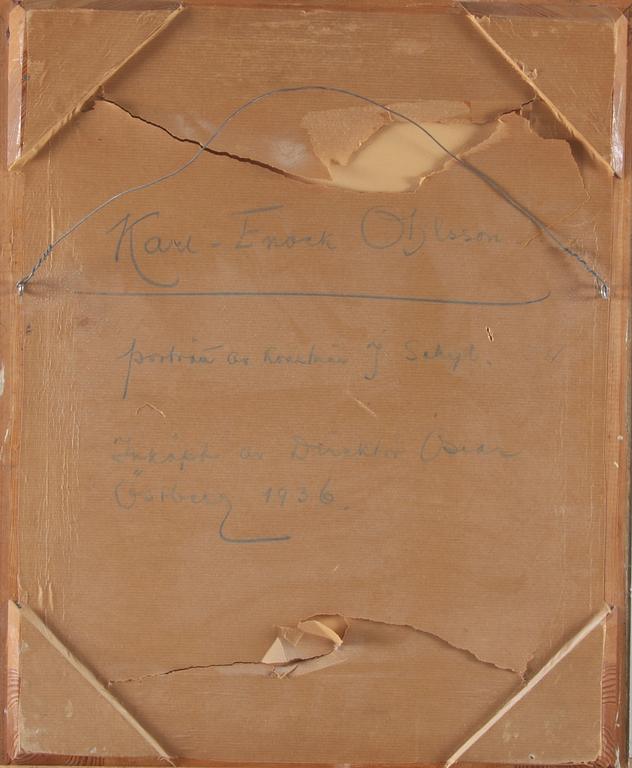 Karl-Enock Ohlsson
porträtt av konstnär J Schyl.
Inköpt av Direktör Oscar
Östberg 1936.